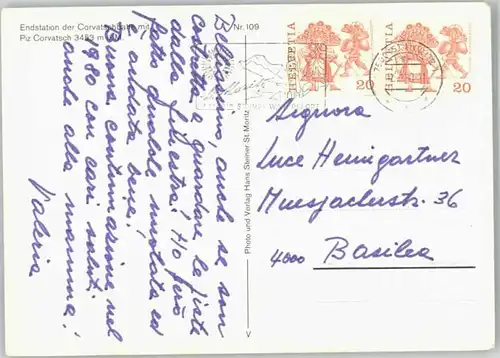 Endstation der Corvatschbahn mit
Piz Corvatsch 3453 m
Nr. 109
Bellissimo, anche se son
costretta a guardare la pista
dalla finestra! Ho però
fatto qualche nuotata ed
è andata bene!
Buona continuazione nel
1980 con cari saluti
anche alla mamma!
Valeria
Photo und Verlag Hans Steiner St. Moritz
V
HELVETIA
20
HELVETIA
20
Signora
Luce Heimgartner
36
4000 Basilea